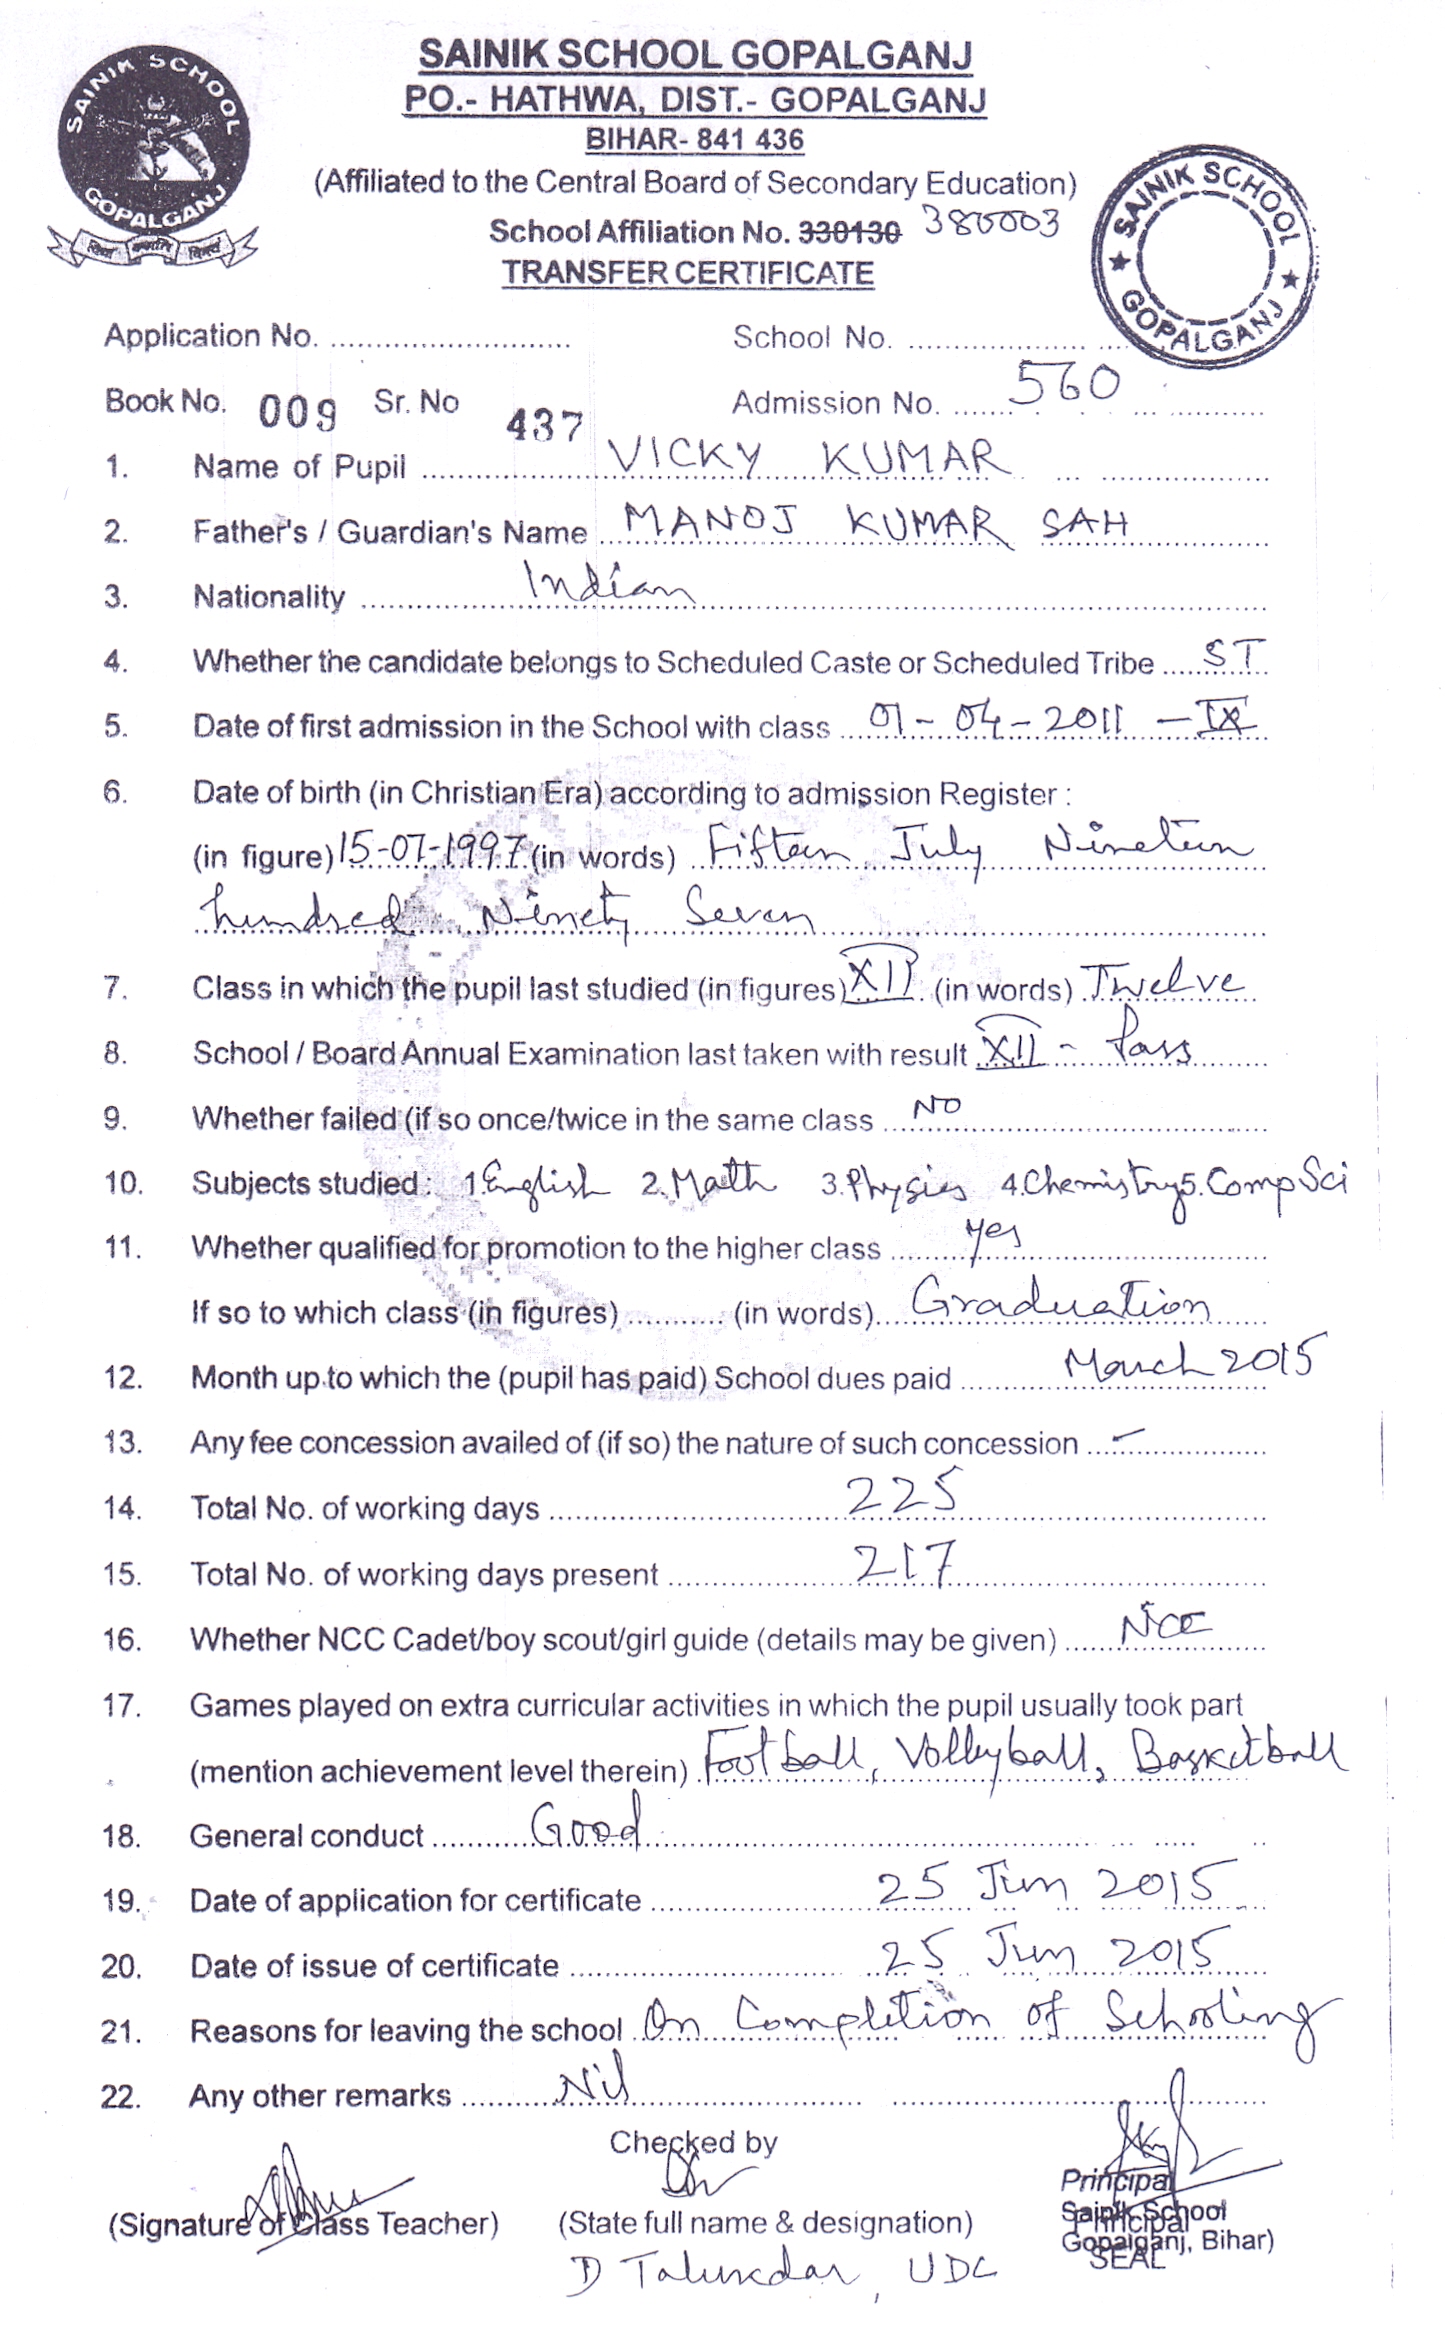 SAINIK SCHOOL GOPALGANJ
PO.- HATHWA, DIST.- GOPALGANJ
BIHAR- 841 436
(Affiliated to the Central Board of Secondary Education)
School Affiliation No. 330130 380003
TRANSFER CERTIFICATE
SAINIK SCHOOL
GOPALGANJ
SAINIK SCHOOL
GOPALGANJ
Application No. ........................... School No. ....................
Book No. 009 Sr. No 437 Admission No. 560
1. Name of Pupil VICKY KUMAR
2. Father's / Guardian's Name MANOJ KUMAR SAH
3. Nationality Indian
4. Whether the candidate belongs to Scheduled Caste or Scheduled Tribe ST
5. Date of first admission in the School with class 01-04-2011 - IX
6. Date of birth (in Christian Era) according to admission Register :
(in figure) 15-07-1997 (in words) Fifteen July Nineteen
hundred Ninety Seven
7. Class in which the pupil last studied (in figures) XII (in words) Twelve
8. School / Board Annual Examination last taken with result XII - Pass
9. Whether failed (if so once/twice in the same class NO
10. Subjects studied : 1.English 2.Math 3.Physics 4.Chemistry 5.Comp Sci
11. Whether qualified for promotion to the higher class Yes
If so to which class (in figures) ........... (in words) Graduation
12. Month up to which the (pupil has paid) School dues paid March 2015
13. Any fee concession availed of (if so) the nature of such concession -
14. Total No. of working days 225
15. Total No. of working days present 217
16. Whether NCC Cadet/boy scout/girl guide (details may be given) NCC
17. Games played on extra curricular activities in which the pupil usually took part
(mention achievement level therein) Football, Volleyball, Basketball
18. General conduct Good
19. Date of application for certificate 25 Jun 2015
20. Date of issue of certificate 25 Jun 2015
21. Reasons for leaving the school On Completion of Schooling
22. Any other remarks Nil
Checked by
(Signature of Class Teacher) (State full name & designation)
D Talukdar, UDC
Principal
Sainik School
Principal
Gopalganj, Bihar)
SEAL